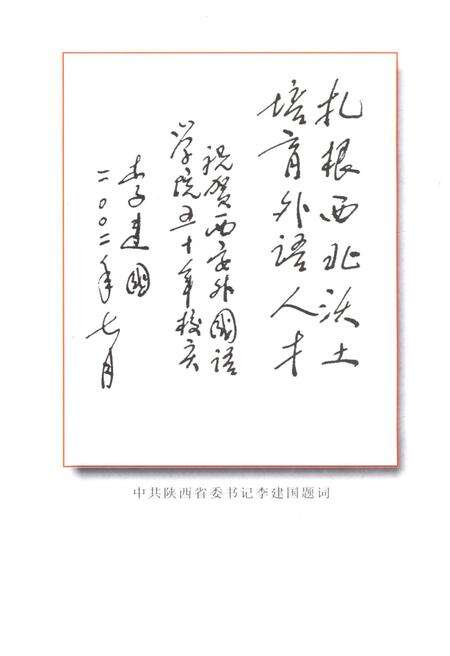 扎根西北沃土
培育外语人才
祝贺西安外國语
学院五十年校庆
李建國
二〇〇二年七月
中共陕西省委书记李建国题词